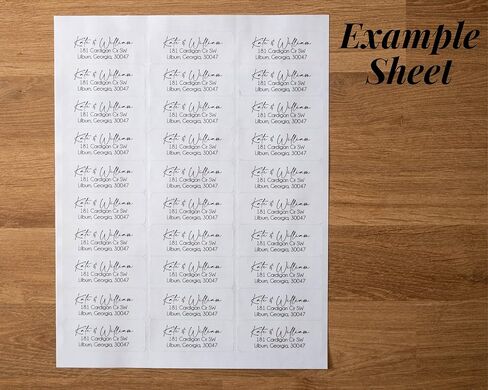 Example
Sheet
Kate & William Kate & William Kate & William
181 Cardigan Cir SW 181 Cardigan Cir SW 181 Cardigan Cir SW
Lilburn, Georgia, 30047 Lilburn, Georgia, 30047 Lilburn, Georgia, 30047
Kate & William Kate & William Kate & William
181 Cardigan Cir SW 181 Cardigan Cir SW 181 Cardigan Cir SW
Lilburn, Georgia, 30047 Lilburn, Georgia, 30047 Lilburn, Georgia, 30047
Kate & William Kate & William Kate & William
181 Cardigan Cir SW 181 Cardigan Cir SW 181 Cardigan Cir SW
Lilburn, Georgia, 30047 Lilburn, Georgia, 30047 Lilburn, Georgia, 30047
Kate & William Kate & William Kate & William
181 Cardigan Cir SW 181 Cardigan Cir SW 181 Cardigan Cir SW
Lilburn, Georgia, 30047 Lilburn, Georgia, 30047 Lilburn, Georgia, 30047
Kate & William Kate & William Kate & William
181 Cardigan Cir SW 181 Cardigan Cir SW 181 Cardigan Cir SW
Lilburn, Georgia, 30047 Lilburn, Georgia, 30047 Lilburn, Georgia, 30047
Kate & William Kate & William Kate & William
181 Cardigan Cir SW 181 Cardigan Cir SW 181 Cardigan Cir SW
Lilburn, Georgia, 30047 Lilburn, Georgia, 30047 Lilburn, Georgia, 30047
Kate & William Kate & William Kate & William
181 Cardigan Cir SW 181 Cardigan Cir SW 181 Cardigan Cir SW
Lilburn, Georgia, 30047 Lilburn, Georgia, 30047 Lilburn, Georgia, 30047
Kate & William Kate & William Kate & William
181 Cardigan Cir SW 181 Cardigan Cir SW 181 Cardigan Cir SW
Lilburn, Georgia, 30047 Lilburn, Georgia, 30047 Lilburn, Georgia, 30047
Kate & William Kate & William Kate & William
181 Cardigan Cir SW 181 Cardigan Cir SW 181 Cardigan Cir SW
Lilburn, Georgia, 30047 Lilburn, Georgia, 30047 Lilburn, Georgia, 30047
Kate & William Kate & William Kate & William
181 Cardigan Cir SW 181 Cardigan Cir SW 181 Cardigan Cir SW
Lilburn, Georgia, 30047 Lilburn, Georgia, 30047 Lilburn, Georgia, 30047